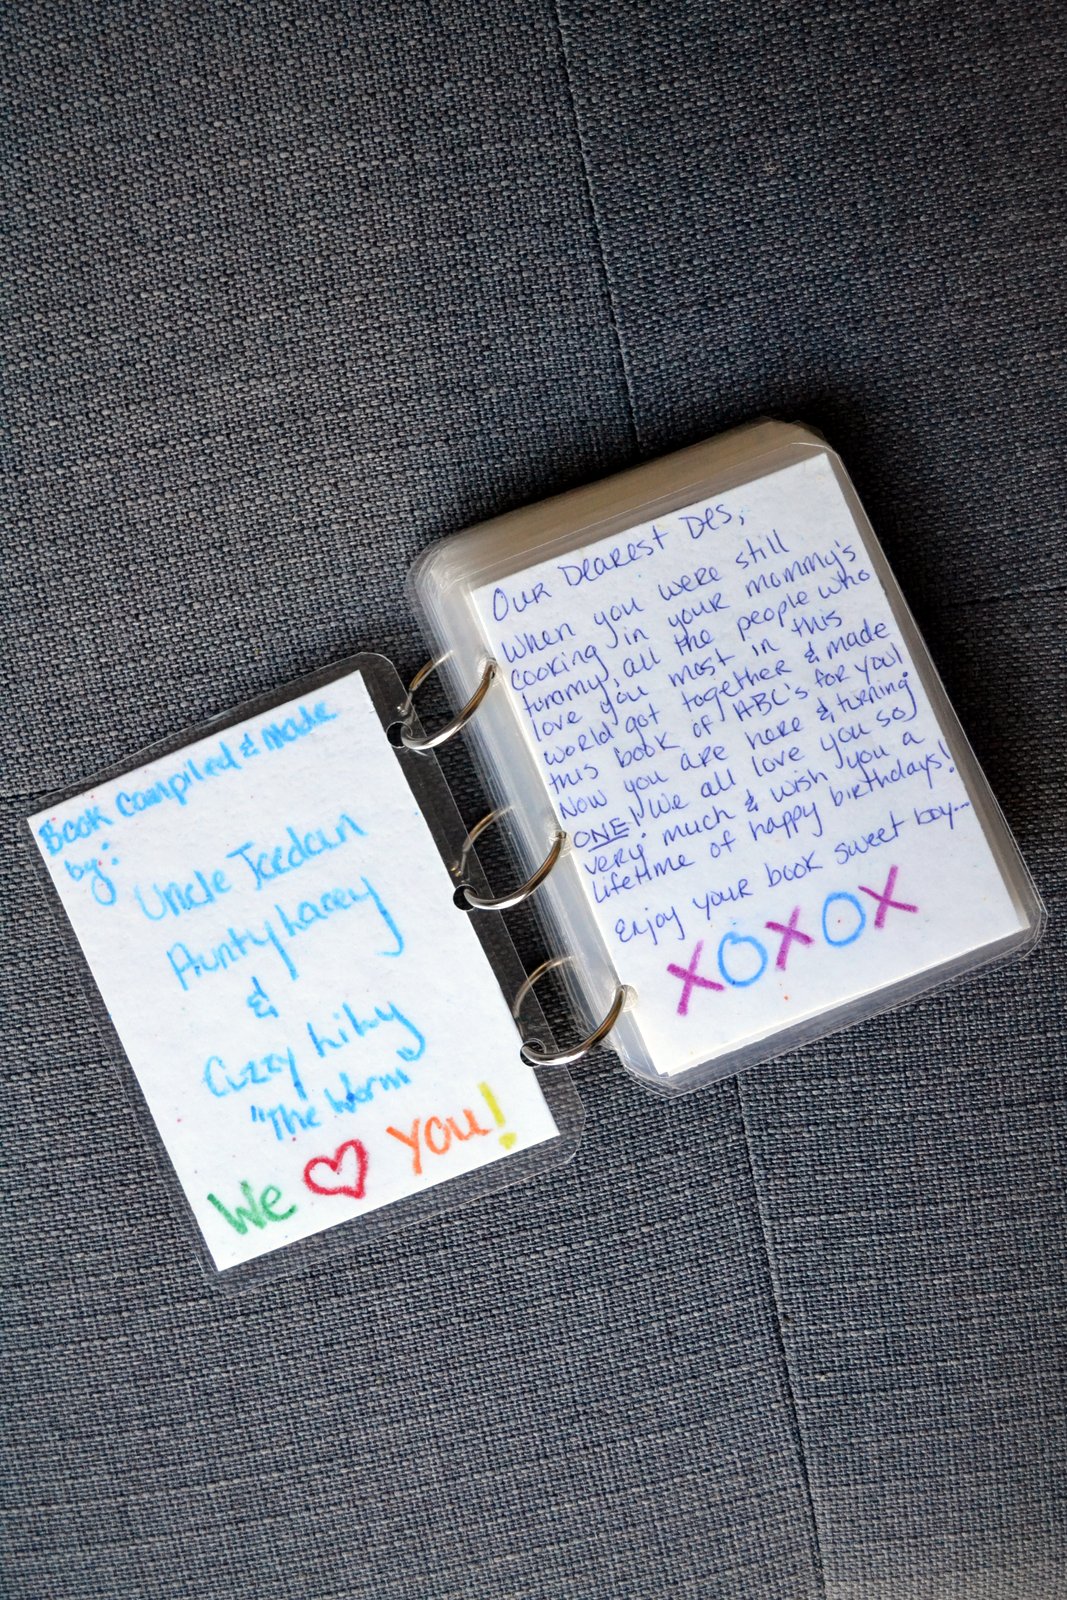 Book compiled & made
by:
Uncle Jeedan
Aunty Lacey
&
Cuzzy Lily
"The Worm"
We ♥ you!
Our Dearest Des,
When you were still
cooking in your mommy's
tummy, all the people who
love you most in this
world got together & made
this book of ABC's for you!
Now you are here & turning
ONE! We all love you so
very much & wish you a
lifetime of happy birthdays!
Enjoy your book sweet boy...
XOXOX